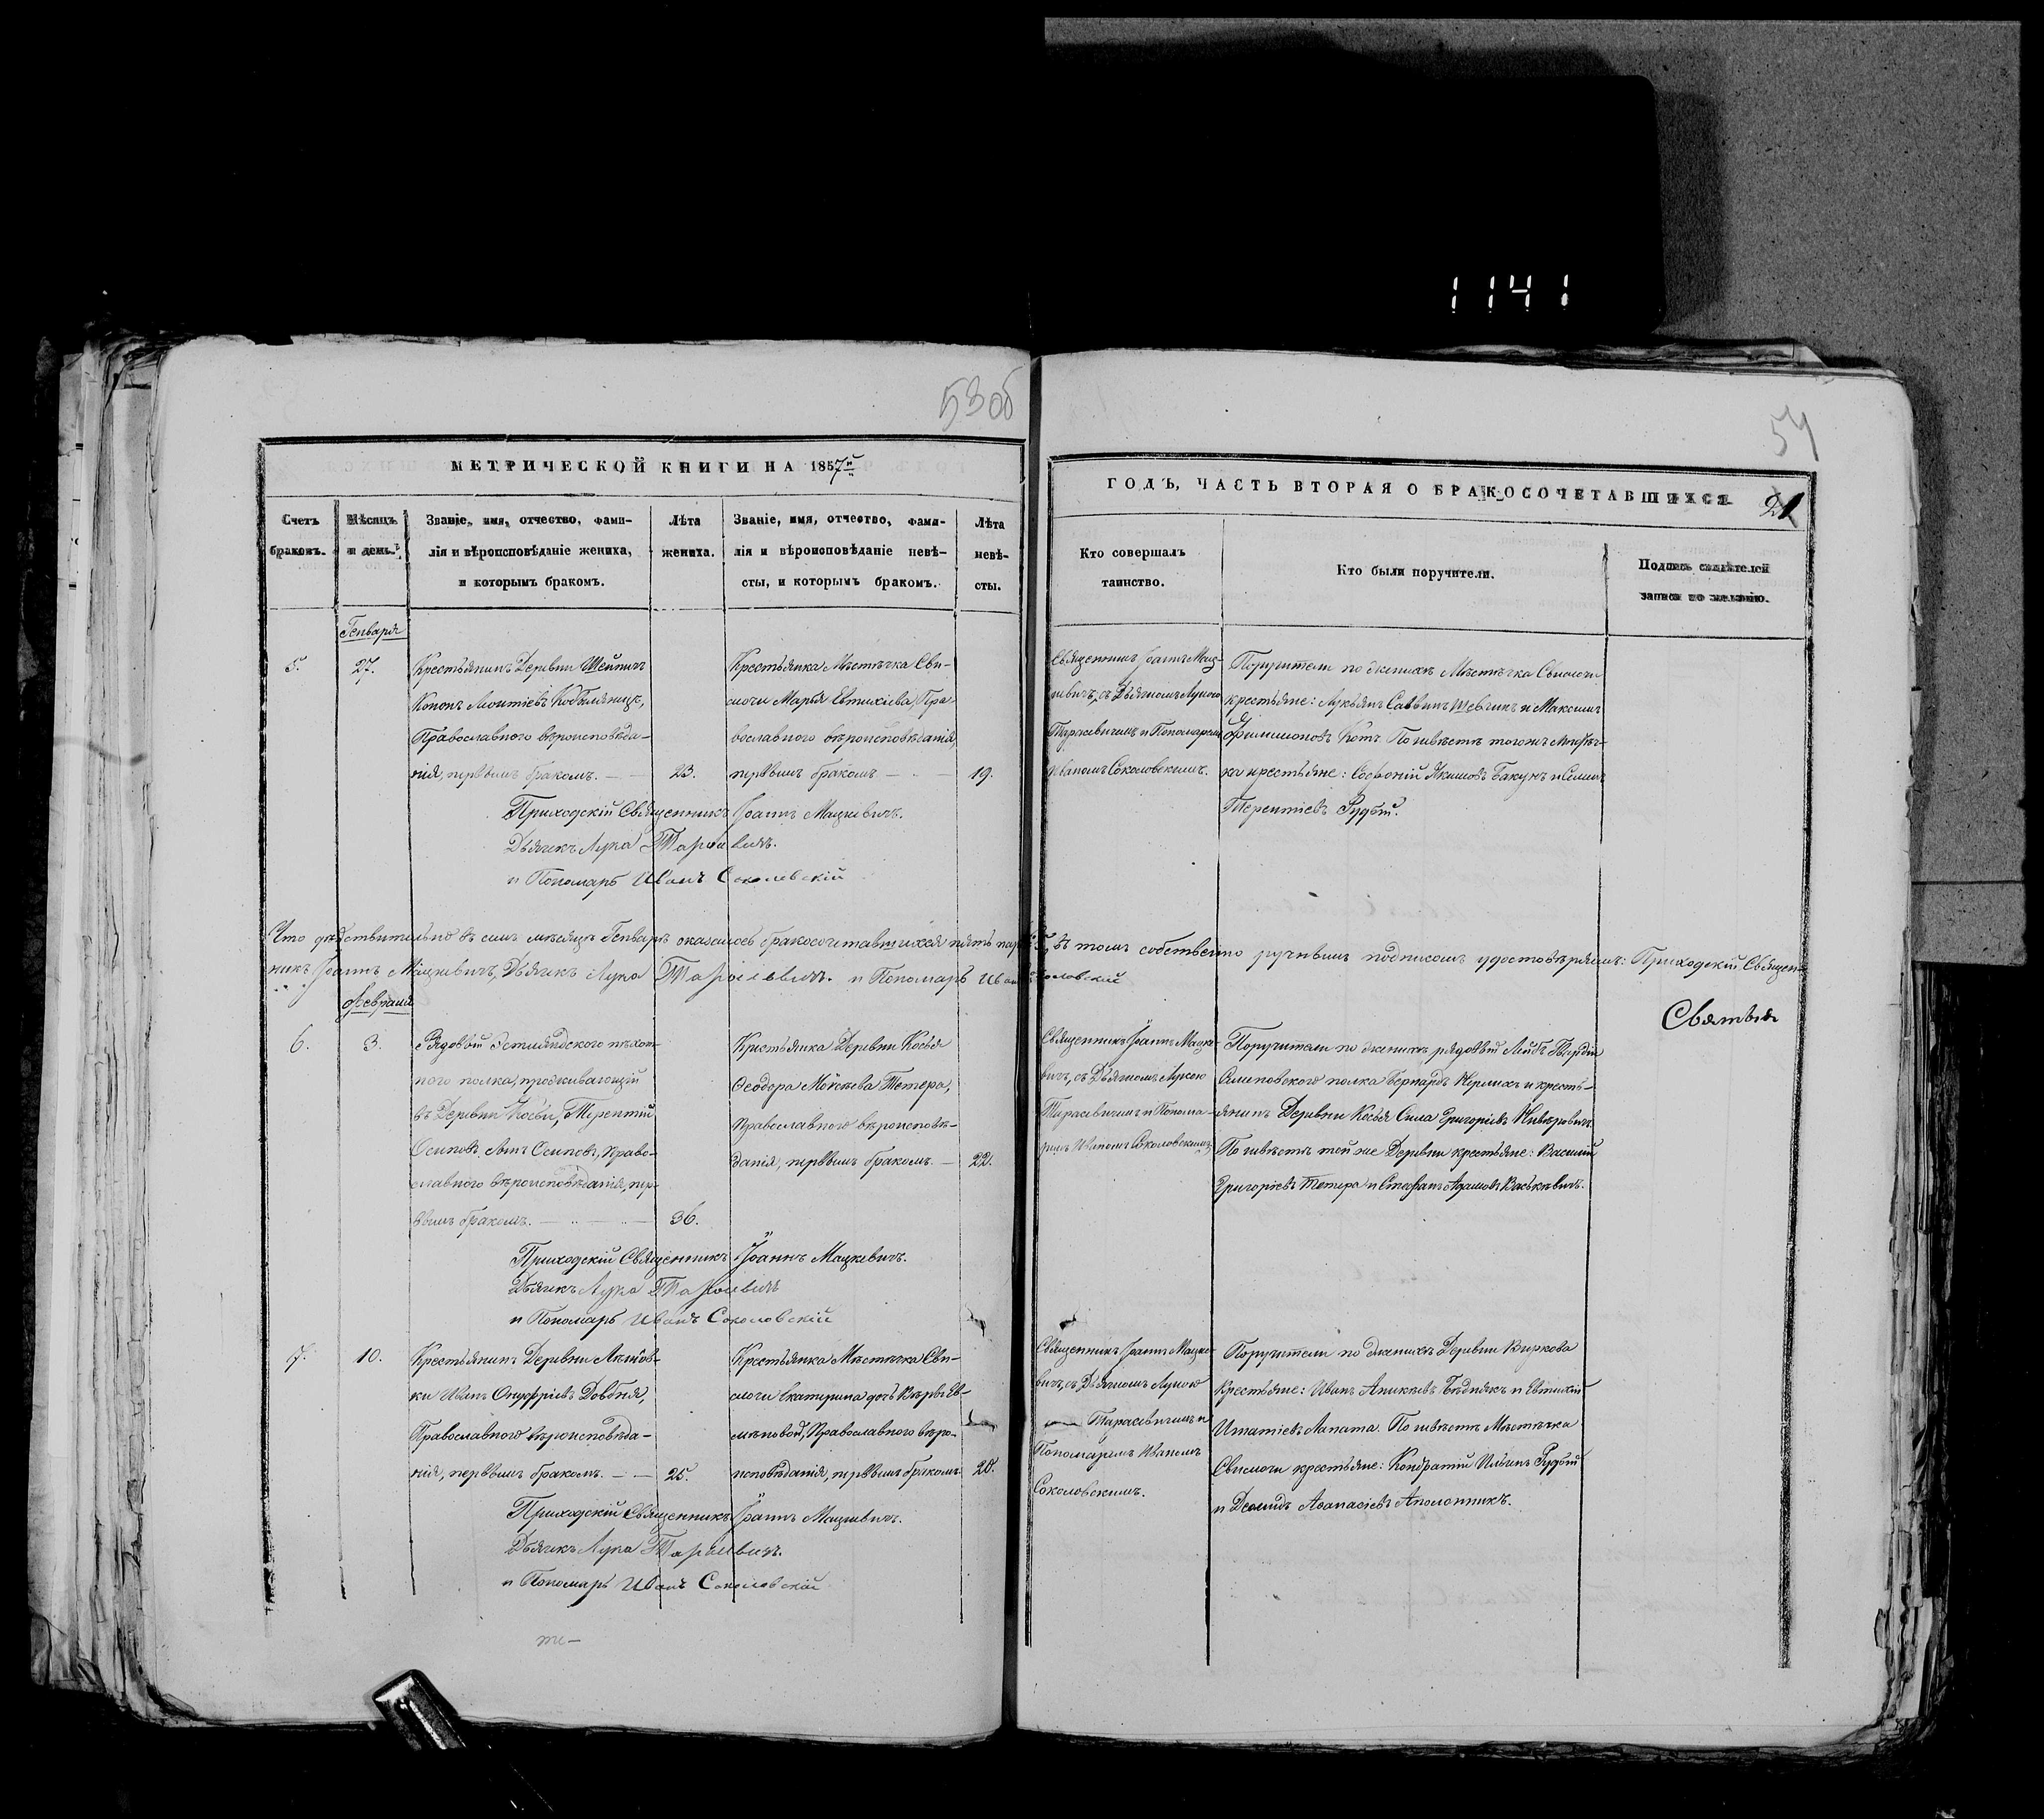 1141
53об
54
МЕТРИЧЕСКОЙ КНИГИ НА 1857й
ГОДЪ, ЧАСТЬ ВТОРАЯ О БРАКОСОЧЕТАВШИХСЯ
21
Счетъ браковъ.
Мѣсяцъ и день.
Званіе, имя, отчество, фами-
лія и вѣроисповѣданіе жениха,
и которымъ бракомъ.
Лѣта
жениха.
Званіе, имя, отчество, фами-
лія и вѣроисповѣданіе невѣ-
сты, и которымъ бракомъ.
Лѣта
невѣ-
сты.
Кто совершалъ
таинство.
Кто были поручители.
Подпись свидѣтелей
записи по желанію.
Генваря
5.
27.
Крестьянинъ Деревни
Кононъ Леонтіевъ
Православнаго вѣроисповѣда-
нія, первымъ бракомъ.
23.
Крестьянка Мѣстечка Сви-
слочи Марья Евтихіева, Пра-
вославнаго вѣроисповѣданія
первымъ бракомъ
19.
Священникъ Іоаннъ Мац-
кевичъ, съ Дьячкомъ Лукою
Тарасевичемъ и Пономаремъ
Иваномъ Соколовскимъ.
Поручители по женихѣ Мѣстечка Свислочи
крестьяне: Лукьянъ Саввинъ Шевчикъ и Максимъ
Филимоновъ Котъ. По невѣстѣ тогожъ Мѣстеч-
ка крестьяне: Софроній Якимовъ Бакунъ и Семенъ
Терентіевъ Рудый.
Приходскій Священникъ Іоаннъ Мацкевичъ.
Дьячекъ Лука Тарасевичъ.
и Пономарь Иванъ Соколовскій
Что дѣйствительно въ семъ мѣсяцѣ Генварѣ оказалось бракосочетавшихся пять паръ въ томъ собственно ручнымъ подписомъ удостовѣряемъ: Приходскій Священ-
никъ Іоаннъ Мацкевичъ, Дьячекъ Лука Тарасевичъ. и Пономарь Иванъ Соколовскій
Февраля
6.
3.
Рядовый Эстляндского пѣхот-
ного полка, проживающій
въ Деревни Косьи, Терентій
Осиповъ сынъ Осиповъ, Право-
славнаго вѣроисповѣданія, пер-
вымъ бракомъ.
36.
Крестьянка Деревни Косья
Феодора Мокіева Тетера,
Православнаго вѣроисповѣ-
данія, первымъ бракомъ.
22.
Священникъ Іоаннъ Мацке-
вичъ, съ Дьячкомъ Лукою
Тарасевичемъ и Понома-
ремъ Иваномъ Соколовскимъ
Поручители по женихѣ рядовый Лейбъ Гвардіи
полка Бернардъ и кресть-
янинъ Деревни Косья Сила Григоріевъ
По невѣстѣ той же Деревни крестьяне: Василій
Григоріевъ Тетера и Стефанъ Адамовъ Васькевичъ.
Приходскій Священникъ Іоаннъ Мацкевичъ.
Дьячекъ Лука Тарасевичъ
и Пономарь Иванъ Соколовскій
7.
10.
Крестьянинъ Деревни
ки Иванъ Онуфріевъ Довбня,
Православнаго вѣроисповѣда-
нія, первымъ бракомъ.
25.
Крестьянка Мѣстечка Сви-
слочи Екатерина дочь Вѣры
Православнаго вѣро-
исповѣданія, первымъ бракомъ
20.
Священникъ Іоаннъ Мацке-
вичъ, съ Дьячкомъ Лукою
Тарасевичемъ и
Пономаремъ Иваномъ
Соколовскимъ.
Поручители по женихѣ Деревни Виркова
Крестьяне: Иванъ Аникіевъ Бѣднякъ и Евтихій
Игнатіевъ Лапата. По невѣстѣ Мѣстечка
Свислочи крестьяне: Кондратій Ильинъ Рудый
и Демидъ Афанасіевъ
Приходскій Священникъ Іоаннъ Мацкевичъ.
Дьячекъ Лука Тарасевичъ.
и Пономарь Иванъ Соколовскій